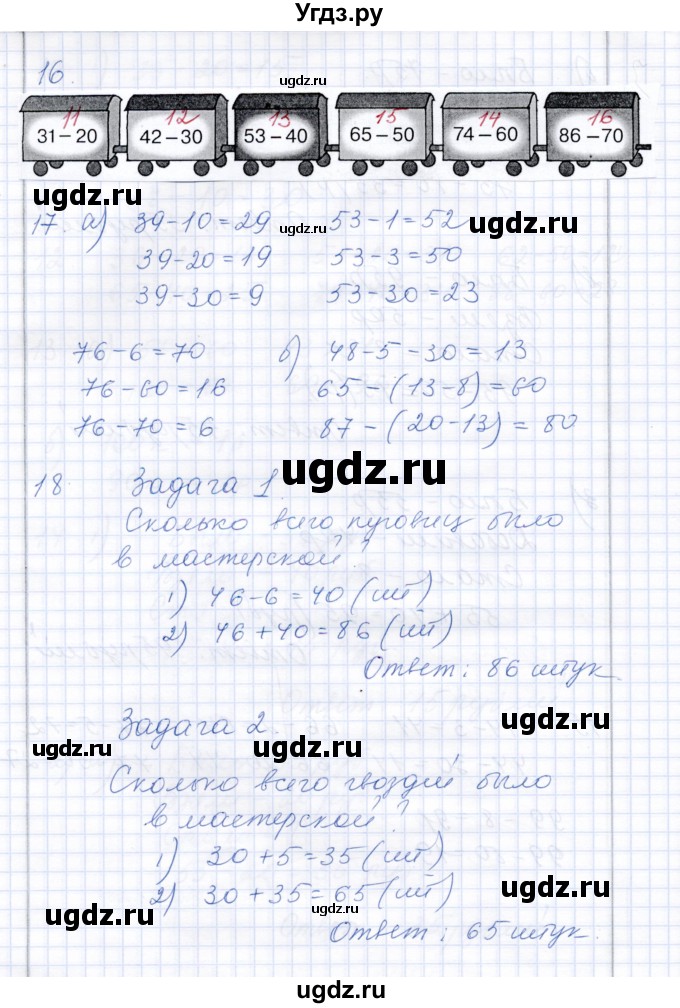 Угдз.ру
16.
ugdz.ru
11 12 13 15 14 16
31 – 20 42 – 30 53 – 40 65 – 50 74 – 60 86 – 70
ugdz.ru ugdz.ru ugdz.ru
17. а) 39-10=29 53-1=52
39-20=19 53-3=50
39-30=9 53-30=23
76-6=70 б) 48-5-30=13
76-60=16 65-(13-8)=60
76-70=6 87-(20-13)=80
ugdz.ru
18 Задача 1
Сколько всего пуговиц было
в мастерской?
1) 46-6=40 (шт)
2) 46+40=86 (шт)
ugdz.ru
Ответ: 86 штук.
ugdz.ru ugdz.ru ugdz.ru
Задача 2.
Сколько всего гвоздей было
в мастерской?
1) 30+5=35 (шт)
2) 30+35=65 (шт)
ugdz.ru ugdz.ru ugdz.ru
Ответ: 65 штук.
ugdz.ru